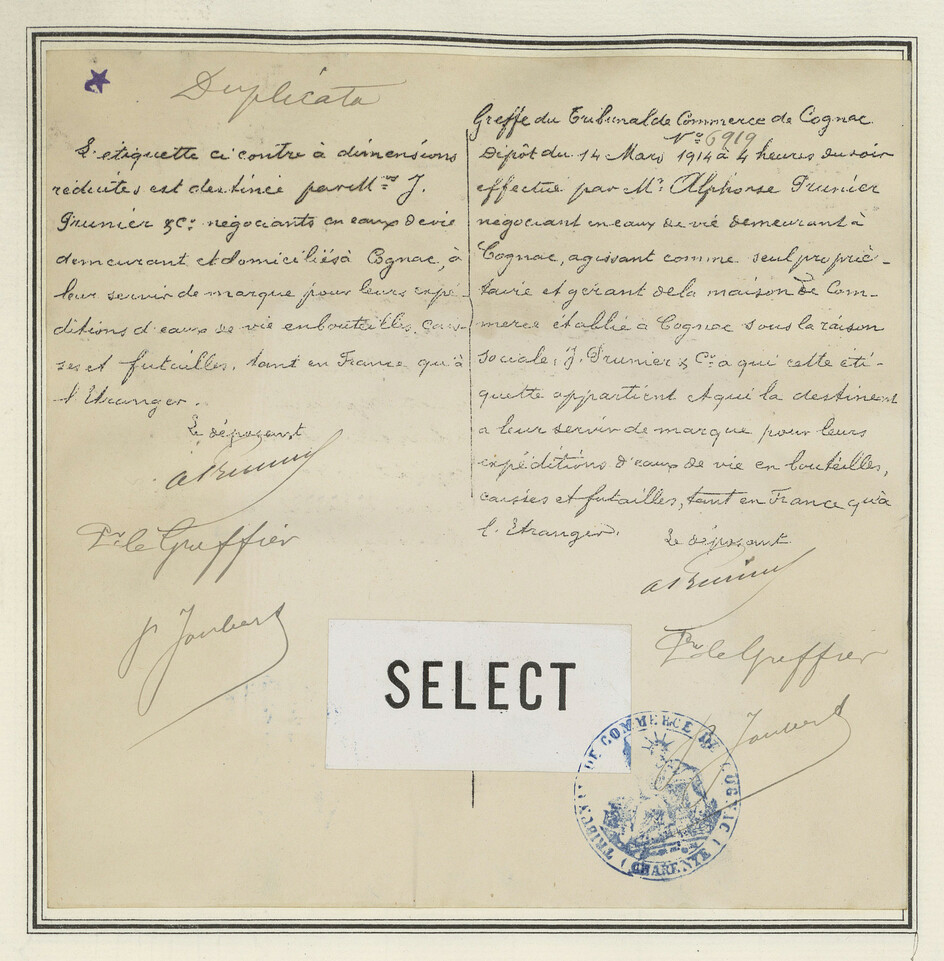 Duplicata
L'étiquette ci contre à dimensions
réduites est destinée par Mrs J.
Prunier & Cie négociants en eaux de vie
demeurant et domiciliés à Cognac, à
leur servir de marque pour leurs expé-
ditions d'eaux de vie en bouteilles, cais-
ses et futailles, tant en France qu'à
l'Etranger.
Le déposant
A Prunier
Pr le Greffier
P Joubert
Greffe du Tribunal de Commerce de Cognac
No 6919
Dépôt du 14 Mars 1914 à 4 heures du soir
effectué par Mr Alphonse Prunier
négociant en eaux de vie demeurant à
Cognac, agissant comme seul proprié-
taire et gérant de la maison de Com-
merce établie à Cognac sous la raison
sociale: J. Prunier & Cie a qui cette éti-
quette appartient et qui la destinent
a leur servir de marque pour leurs
expéditions d'eaux de vie en bouteilles,
caisses et futailles, tant en France qu'à
l'Etranger.
Le déposant
A Prunier
Pr le Greffier
P Joubert
SELECT
TRIBUNAL DE COMMERCE DE COGNAC
(CHARENTE)